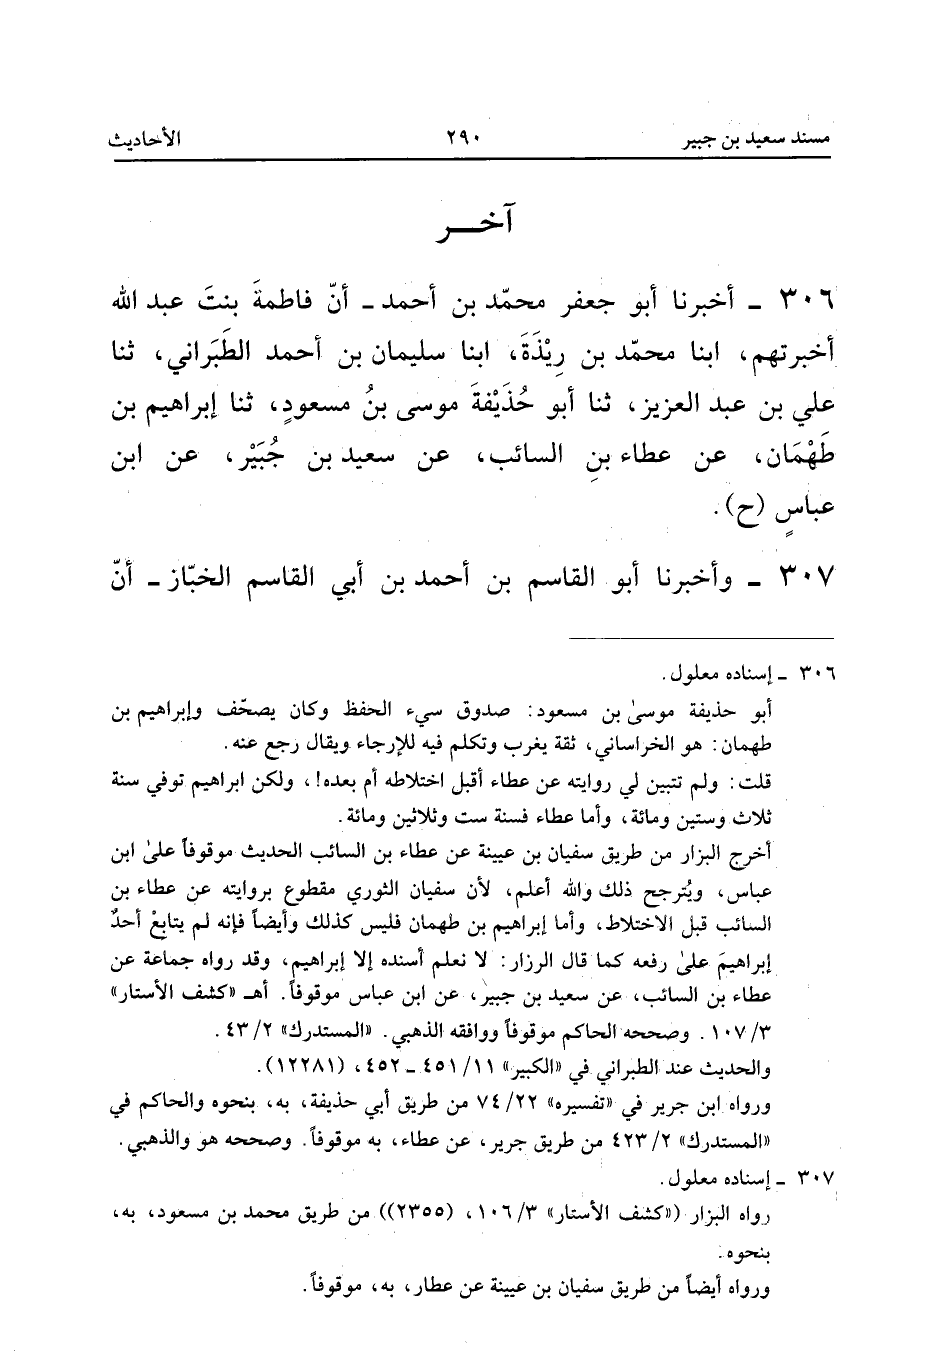 مسند سعيد بن جبير ٢٩٠ الأحاديث
آخـــر
٣٠٦ ـ أخبرنا أبو جعفر محمّد بن أحمد ـ أنّ فاطمةَ بنتَ عبد الله
أخبرتهم، ابنا محمّد بن رِيْذَةَ، ابنا سليمان بن أحمد الطَبَراني، ثنا
علي بن عبد العزيز، ثنا أبو حُذَيْفةَ موسى بنُ مسعودٍ، ثنا إبراهيم بن
طَهْمَان، عن عطاء بنِ السائب، عن سعيد بن جُبَيْر، عن ابن
عباسٍ (ح).
٣٠٧ ـ وأخبرنا أبو القاسم بن أحمد بن أبي القاسم الخبّاز ـ أنّ
٣٠٦ ـ إسناده معلول.
أبو حذيفة موسىٰ بن مسعود: صدوق سيء الحفظ وكان يصحّف وإبراهيم بن
طهمان: هو الخراساني، ثقة يغرب وتكلم فيه للإرجاء ويقال رجع عنه.
قلت: ولم تتبين لي روايته عن عطاء أقبل اختلاطه أم بعده!، ولكن ابراهيم توفي سنة
ثلاث وستين ومائة، وأما عطاء فسنة ست وثلاثين ومائة.
أخرج البزار من طريق سفيان بن عيينة عن عطاء بن السائب الحديث موقوفاً علىٰ ابن
عباس، ويُترجح ذلك والله أعلم، لأن سفيان الثوري مقطوع بروايته عن عطاء بن
السائب قبل الاختلاط، وأما إبراهيم بن طهمان فليس كذلك وأيضاً فإنه لم يتابعْ أحدٌ
إبراهيمَ علىٰ رفعه كما قال الرزار: لا نعلم أسنده إلا إبراهيم، وقد رواه جماعة عن
عطاء بن السائب، عن سعيد بن جبير، عن ابن عباس موقوفاً. أهـ «كشف الأستار»
٣/ ١٠٧. وصححه الحاكم موقوفاً ووافقه الذهبي. «المستدرك» ٢/ ٤٣.
والحديث عند الطبراني في «الكبير» ١١/ ٤٥١ ـ ٤٥٢، (١٢٢٨١).
ورواه ابن جرير في «تفسيره» ٢٢/ ٧٤ من طريق أبي حذيفة، به، بنحوه والحاكم في
«المستدرك» ٢/ ٤٢٣ من طريق جرير، عن عطاء، به موقوفاً. وصححه هو والذهبي.
٣٠٧ ـ إسناده معلول.
رواه البزار («كشف الأستار» ٣/ ١٠٦، (٢٣٥٥)) من طريق محمد بن مسعود، به،
بنحوه.
ورواه أيضاً من طريق سفيان بن عيينة عن عطار، به، موقوفاً.